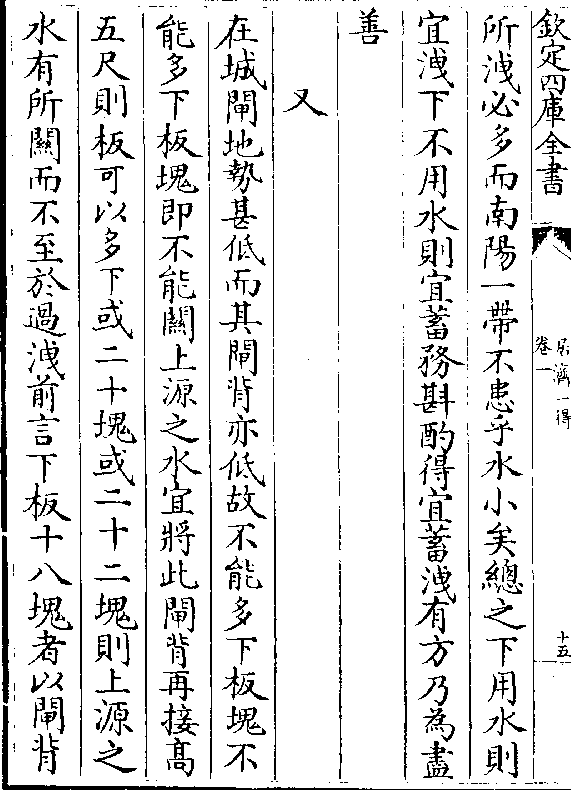 欽定四庫全書
居濟一得
卷一
十五
所洩必多而南陽一帶不患乎水小矣總之下用水則
宜洩下不用水則宜蓄務斟酌得宜蓄洩有方乃為盡
善
又
在城閘地勢甚低而其閘背亦低故不能多下板塊不
能多下板塊即不能關上源之水宜將此閘背再接髙
五尺則板可以多下或二十塊或二十二塊則上源之
水有所關而不至於過洩前言下板十八塊者以閘背